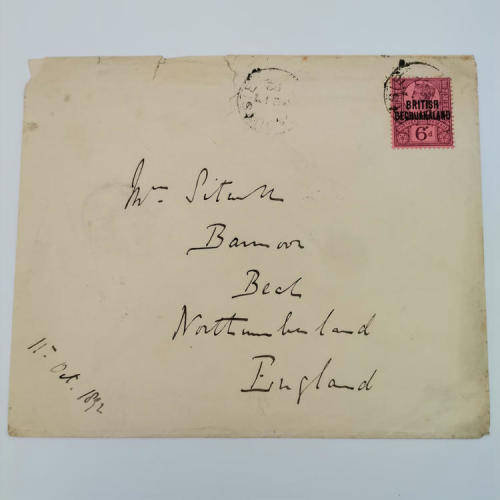 BRITISH
BECHUANALAND
6d
Mrs Sitwell
Barmoor
Beal
Northumberland
England
11 Oct. 1892